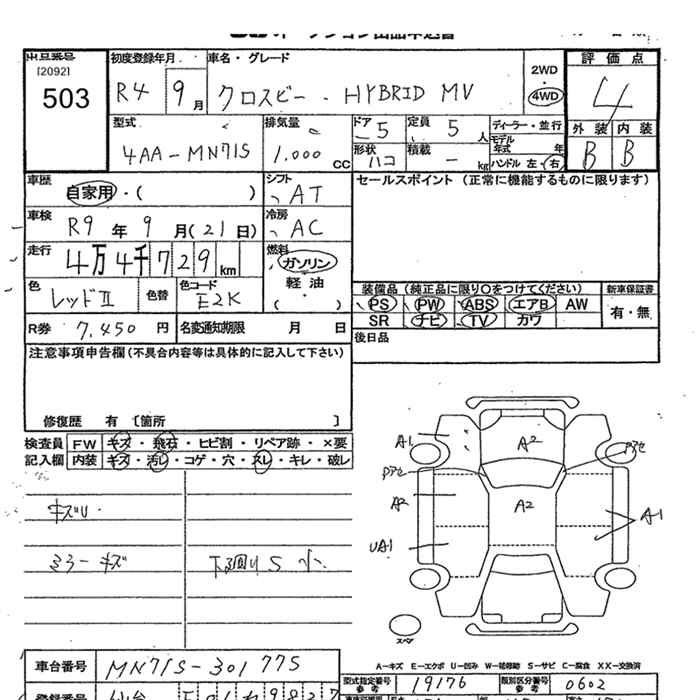 出品番号
[2092]
503
初度登録年月
R4 9月
車名・グレード
クロスビー・HYBRID MV
2WD
4WD
評価点
4
外装 内装
B B
型式
4AA-MN71S
排気量
1,000 cc
ドア 5
定員 5 人
形状 ハコ
積載 - kg
ディーラー・並行
モデル年式 年
ハンドル 左・右
車歴
自家用・( )
シフト AT
車検
R9年9月(21日)
冷房 AC
走行
4万4千729km
燃料
ガソリン
軽油
( )
色 レッドII 色替
色コード E2K
R券 7,450円
名変通知期限 月 日
セールスポイント (正常に機能するものに限ります)
装備品 (純正品に限り○をつけてください)
新車保証書
PS PW ABS エアB AW
有・無
SR ナビ TV カワ
後日品
注意事項申告欄(不具合内容等は具体的に記入して下さい)
修復歴 有 〔箇所 〕
検査員 FW キズ・飛石・ヒビ割・リペア跡・×要
記入欄 内装 キズ・汚レ・コゲ・穴・スレ・キレ・破レ
キズU.
ミラーキズ
下廻りS小
A1
A2
Pアセ
Pアセ
A2
A2
A1
UA1
スペア
A-キズ E-エクボ U-凹み W-補修跡 S-サビ C-腐食 XX-交換済
車台番号
MN71S-301775
型式指定番号
参考
19176
類別区分番号
参考
0602
登録番号
仙台